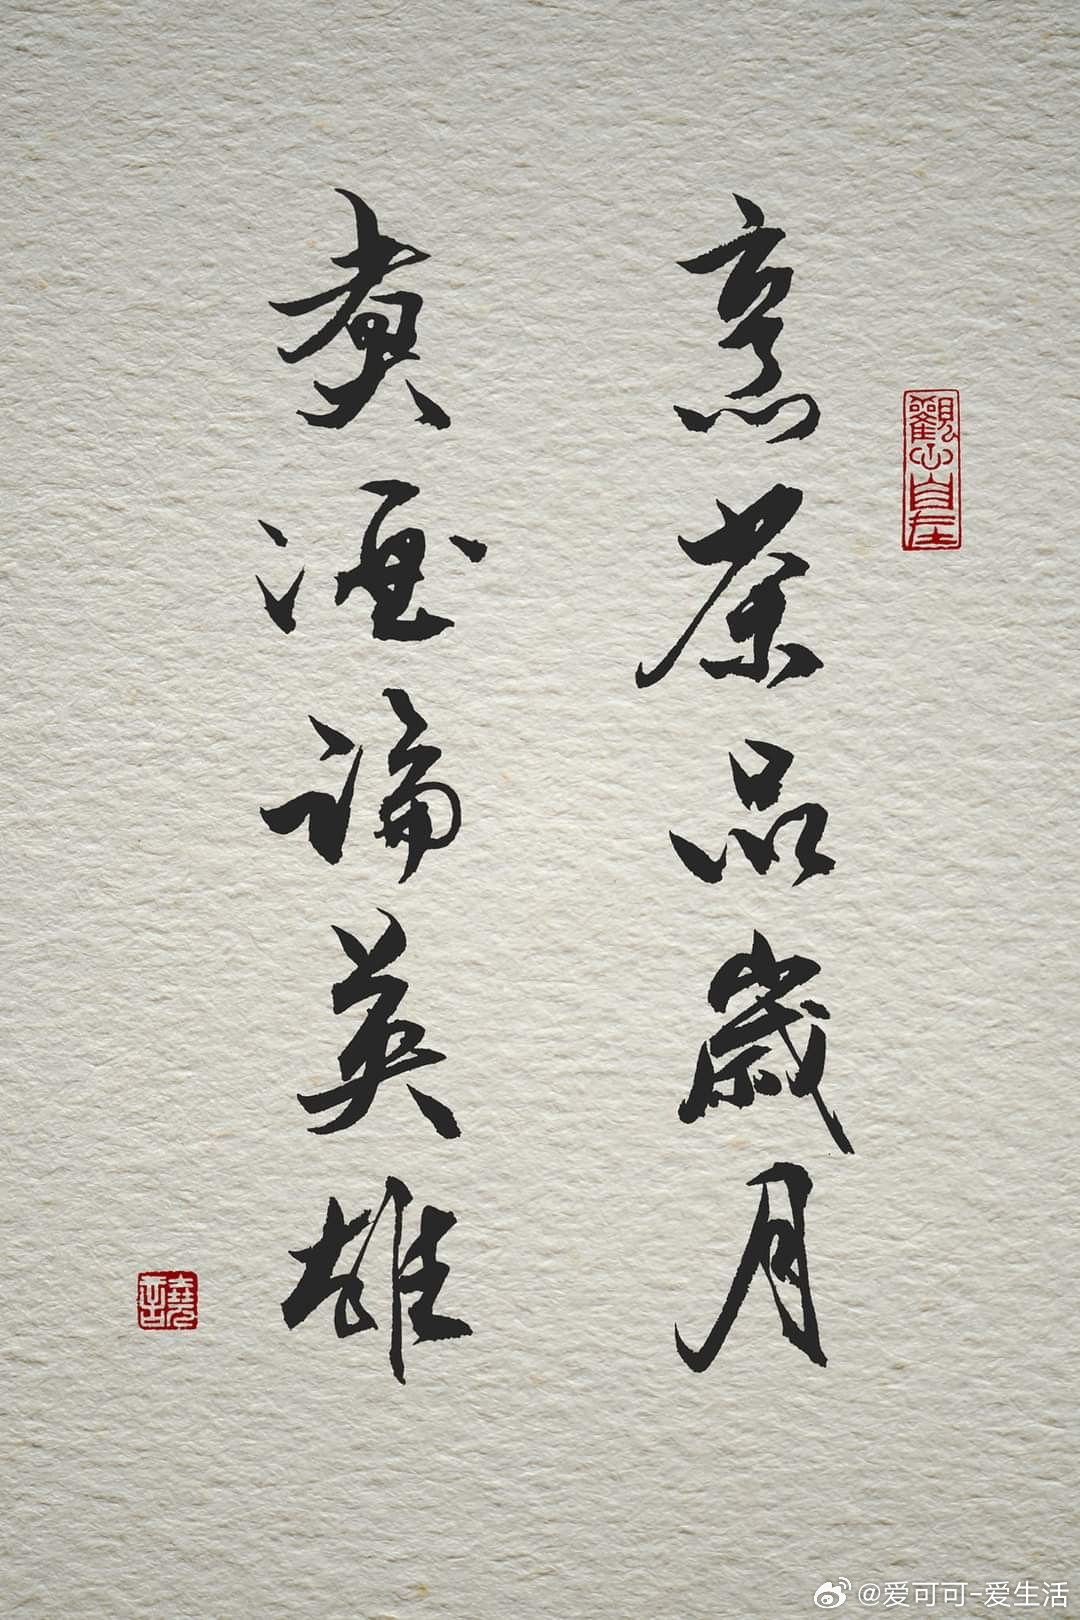 烹茶品歲月
煮酒論英雄
觀山自在
@爱可可-爱生活